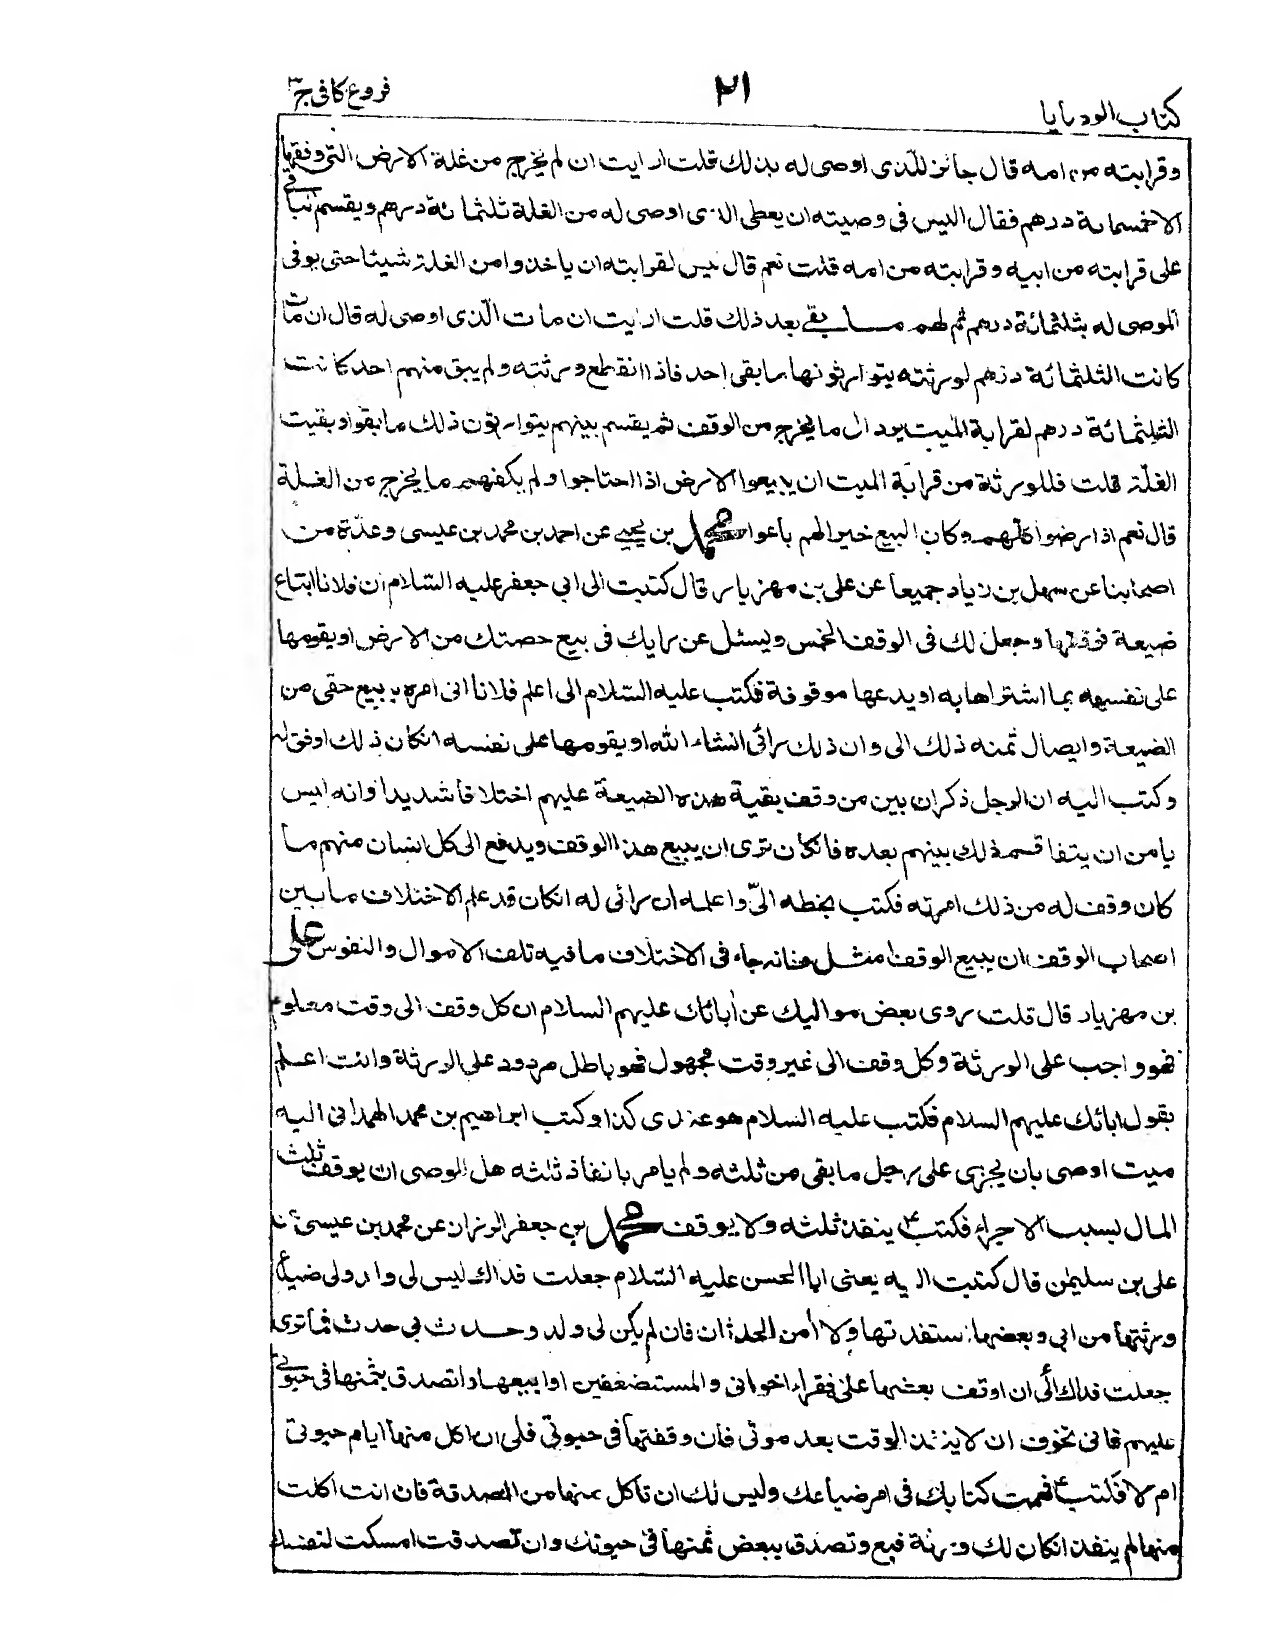 كتاب الوصايا ٢١ فروع كافى ج٣
وقرابته من امه قال جائز للّذى اوصى له بذلك قلت ارايت ان لم يخرج من غلة الارض التى وقفها
الا خمسمائة درهم فقال اليس فى وصيته ان يعطى الذى اوصى له من الغلة ثلثمائة درهم ويقسم الباقى
على قرابته من ابيه وقرابته من امه قلت نعم قال ليس لقرابته ان ياخذوا من الغلة شيئا حتى يوفى
الموصى له بثلثمائة درهم ثم لهم ما يبقى بعد ذلك قلت ارايت ان مات الّذى اوصى له قال ان مات
كانت الثلثمائة درهم لورثته يتوارثونها ما بقى احد فاذا انقطع ورثته ولم يبق منهم احد كانت
الثلثمائة درهم لقرابة الميت يرد الى ما يخرج من الوقف ثم يقسم بينهم يتوارثون ذلك ما بقوا وبقيت
الغلة قلت فللورثة من قرابة الميت ان يبيعوا الارض اذا احتاجوا ولم يكفهم ما يخرج من الغلة
قال نعم اذا رضوا كلهم وكان البيع خيرا لهم باعوا محمد بن يحيى عن احمد بن محمد بن عيسى وعدّة من
اصحابنا عن سهل بن زياد جميعا عن على بن مهزيار قال كتبت الى ابى جعفر عليه السّلام ان فلانا ابتاع
ضيعة فوقفها وجعل لك فى الوقف الخمس ويسئل عن رايك فى بيع حصتك من الارض او يقومها
على نفسه بما اشتراها به او يدعها موقوفة فكتب عليه السّلام الى اعلم فلانا انى امره ببيع حقى من
الضيعة وايصال ثمنه ذلك الى وان ذلك رائى انشاء الله او يقومها على نفسه انكان ذلك اوفق له
وكتب اليه ان الرجل ذكر ان بين من وقف بقية هذه الضيعة عليهم اختلافا شديدا وانه ليس
يامن ان يتفاقم ذلك بينهم بعده فانكان ترى ان يبيع هذا الوقف ويدفع الى كل انسان منهم ما
كان وقف له من ذلك امرته فكتب بخطه الىّ واعلمه ان رائى له انكان قد علم الاختلاف ما بين
اصحاب الوقف ان يبيع الوقف امثل فانه جاء فى الاختلاف ما فيه تلف الاموال والنفوس على
بن مهزيار قال قلت روى بعض مواليك عن ابائك عليهم السلام ان كل وقف الى وقت معلوم
فهو واجب على الورثة وكل وقف الى غير وقت مجهول فهو باطل مردود على الورثة وانت اعلم
بقول ابائك عليهم السلام فكتب عليه السلام هو عندى كذا وكتب ابراهيم بن محمد الهمدانى اليه
ميت اوصى بان يجرى على رجل ما بقى من ثلثه ولم يامر بانفاذ ثلثه هل للوصى ان يوقف ثلث
المال بسبب الاجراء فكتب ع ينفذ ثلثه ولا يوقف محمد بن جعفر الرزاز عن محمد بن عيسى عن
على بن سليمن قال كتبت اليه يعنى ابا الحسن عليه السّلام جعلت فداك ليس لى ولد ولى ضياع
ورثتها من ابى وبعضها استفدتها ولا أمن الحدثان فان لم يكن لى ولد وحدث بى حدث فما ترى
جعلت فداك لى ان اوقف بعضها على فقراء اخوانى والمستضعفين او ابيعها واتصدق بثمنها فى حيوتى
عليهم فانى نخوف ان لا ينفذ الوقت بعد موتى فان وقفتها فى حيوتى فلى ان اكل منها ايام حيوتى
ام لا فكتب ع فهمت كتابك فى امر ضياعك وليس لك ان تاكل منها من الصدقة فان انت اكلت
منها لم ينفذ انكان لك ورثة فبع وتصدق ببعض ثمنها فى حيوتك وان تصدقت امسكت لنفسك